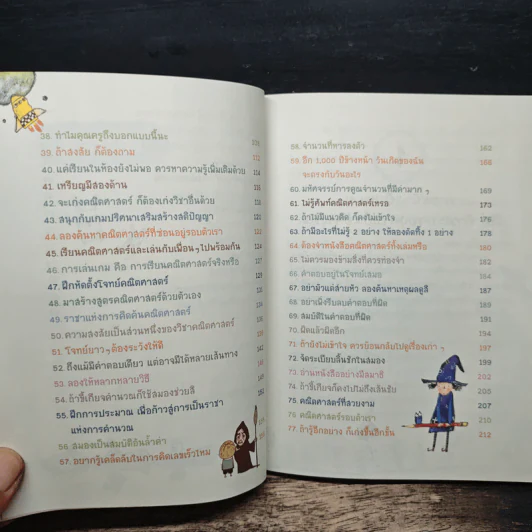 38. ทำไมคุณครูถึงบอกแบบนี้นะ
39. ถ้าสงสัย ก็ต้องถาม 112
40. แต่เรียนในห้องยังไม่พอ ควรหาความรู้เพิ่มเติมด้วย
41. เหรียญมีสองด้าน
42. จะเก่งคณิตศาสตร์ ก็ต้องเก่งวิชาอื่นด้วย
43. สนุกกับเกมปริศนาเสริมสร้างสติปัญญา
44. ลองค้นหาคณิตศาสตร์ที่ซ่อนอยู่รอบตัวเรา
45. เรียนคณิตศาสตร์และเล่นกับเพื่อน ๆ ไปพร้อมกัน
46. การเล่นเกม คือ การเรียนคณิตศาสตร์จริงหรือ
47. ฝึกหัดตั้งโจทย์คณิตศาสตร์
48. มาสร้างสูตรคณิตศาสตร์ด้วยตัวเอง
49. ราชาแห่งการคิดค้นคณิตศาสตร์
50. ความสงสัยเป็นส่วนหนึ่งของวิชาคณิตศาสตร์
51. โจทย์ยาว ๆ ต้องระวังให้ดี
52. ถึงแม้มีคำตอบเดียว แต่อาจมีได้หลายเส้นทาง
53. ลองให้หลากหลายวิธี
54. ถ้าขี้เกียจคำนวณก็ใช้สมองช่วยสิ
55. ฝึกการประมาณ เพื่อก้าวสู่การเป็นราชา
แห่งการคำนวณ
56. สมองเป็นสมบัติอันล้ำค่า
57. อยากรู้เคล็ดลับในการคิดเลขเร็วไหม
58. จำนวนที่หารลงตัว 163
59. อีก 1,000 ปีข้างหน้า วันเกิดของฉัน 166
จะตรงกับวันอะไร
60. มหัศจรรย์การคูณจำนวนที่มีค่ามาก ๆ 169
61. ไม่รู้ศัพท์คณิตศาสตร์เหรอ 173
62. ถ้าไม่มีแนวคิด ก็คงไม่เข้าใจ 176
63. ถ้ามีอะไรที่ไม่รู้ 2 อย่าง ให้ลองตัดทิ้ง 1 อย่าง 178
64. ต้องจำหนังสือคณิตศาสตร์ทั้งเล่มหรือ 180
65. ไม่ควรมองข้ามสิ่งที่ควรท่องจำ 182
66. คำตอบอยู่ในโจทย์เสมอ 184
67. อย่ามัวแต่ส่ายหัว ลองค้นหาเหตุผลดูสิ 187
68. อย่าเพิ่งรีบลบคำตอบที่ผิด 189
69. สมบัติในคำตอบที่ผิด 191
70. ผิดแล้วผิดอีก 194
71. ถ้ายังไม่เข้าใจ ควรย้อนกลับไปดูเรื่องเก่า ๆ 197
72. จัดระเบียบลิ้นชักในสมอง 199
73. อ่านหนังสืออย่างมีสมาธิ 202
74. ถ้าขี้เกียจก็คงไปไม่ถึงเส้นชัย 205
75. คณิตศาสตร์ที่สวยงาม 207
76. คณิตศาสตร์รอบตัวเรา 210
77. ถ้ารู้อีกอย่าง ก็เก่งขึ้นอีกขั้น 212